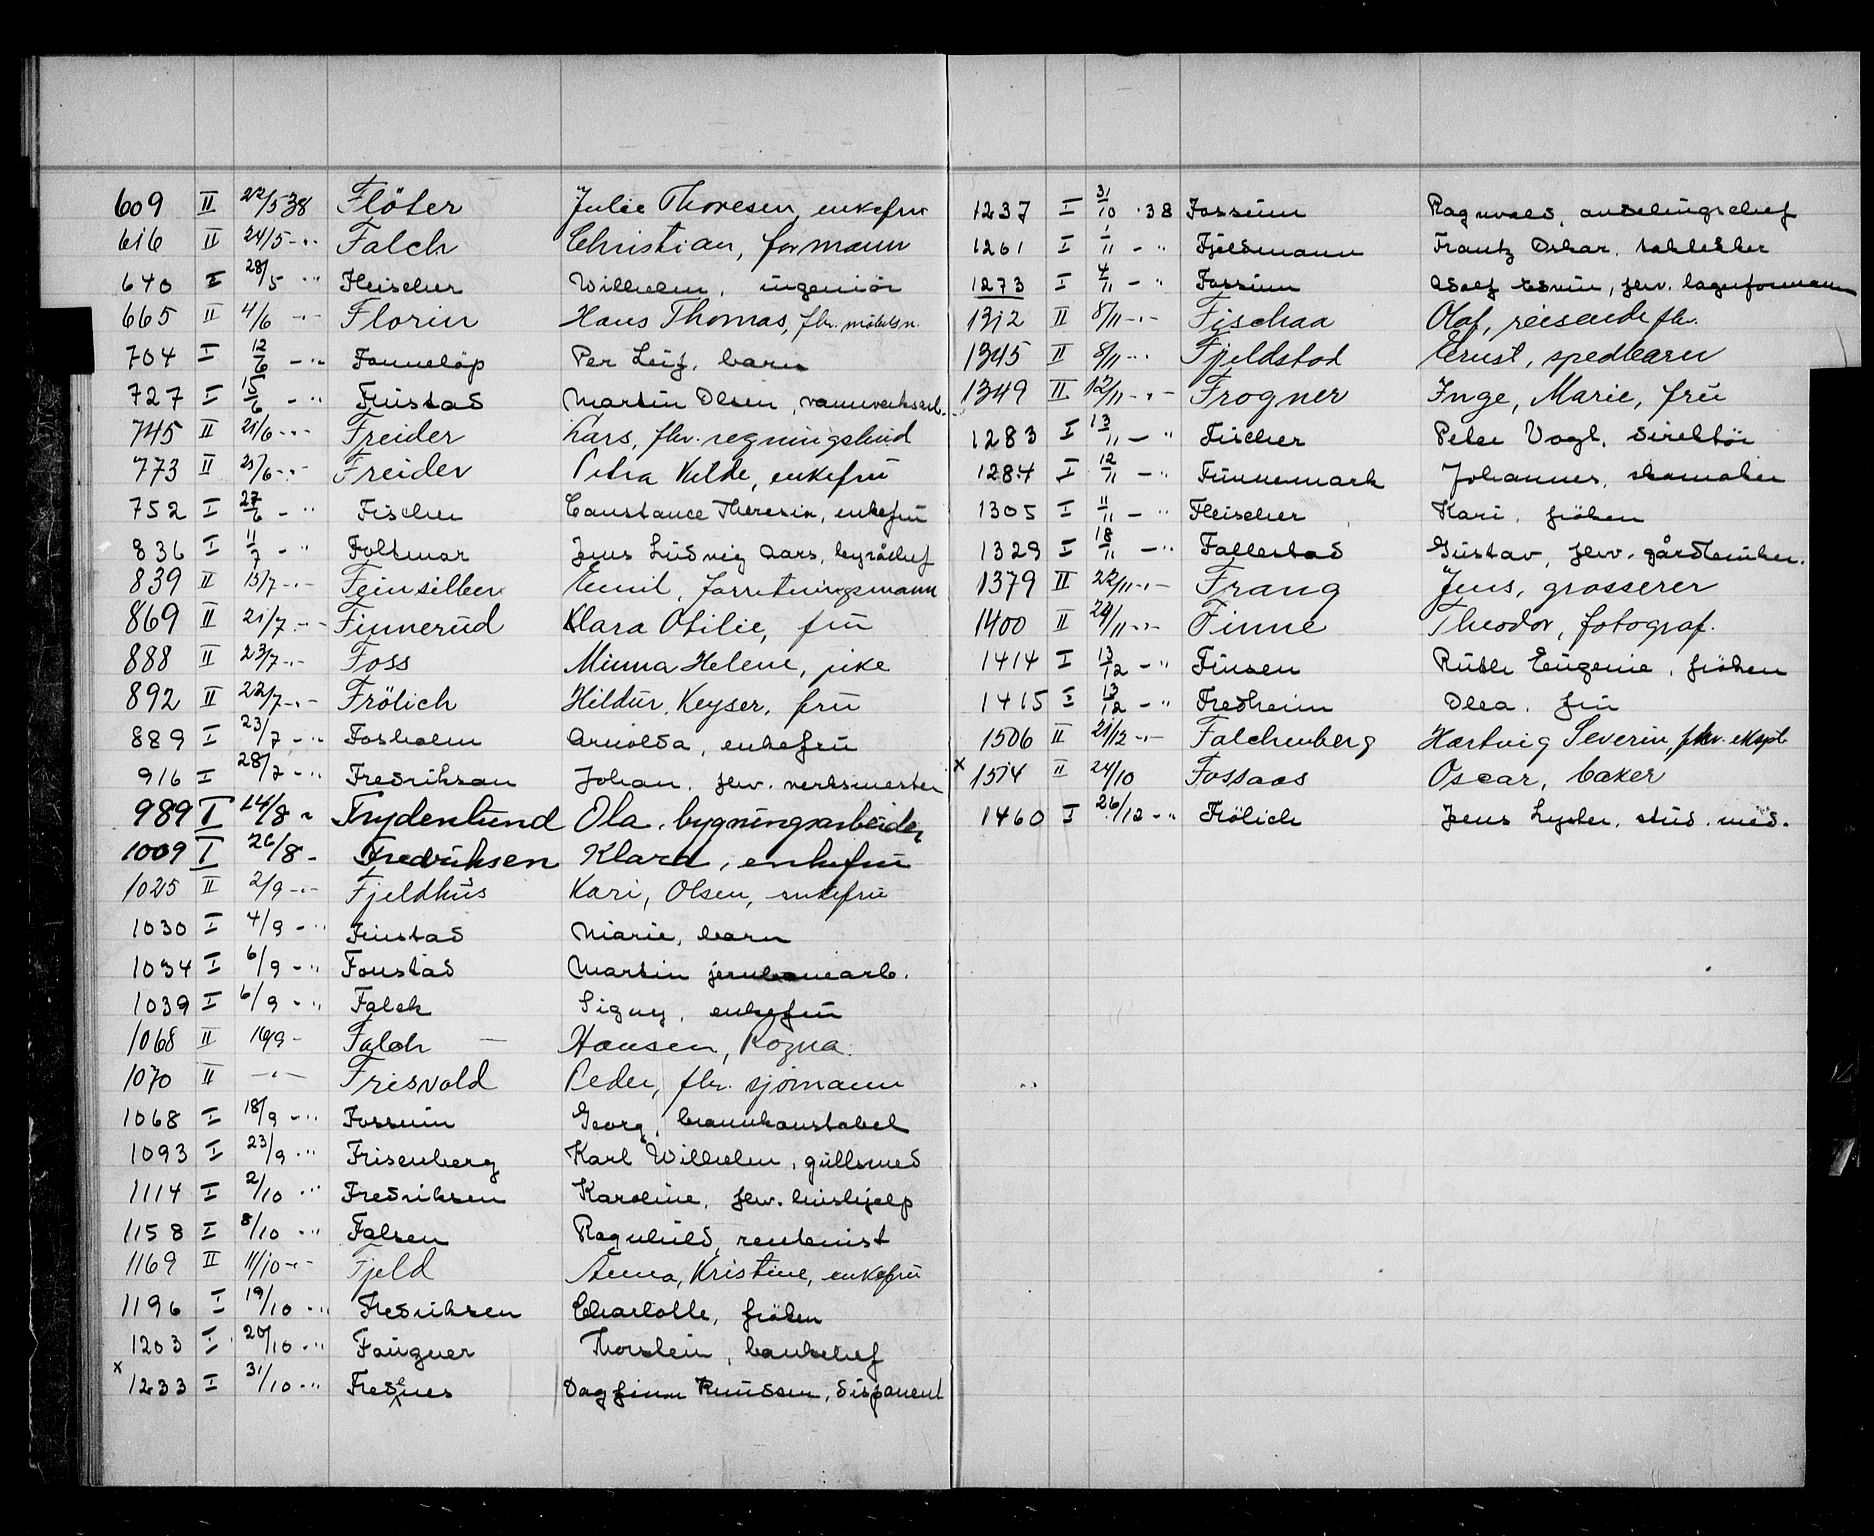 609 II 22/5 38 Flöter Julie Thoresen, enkefru
616 II 24/5 -"- Falch Christian, formann
640 I 28/5 " Fleischer Wilhelm, ingeniör
665 II 4/6 -"- Florin Hans Thomas, fhv. möbelsn.
704 I 12/6 -" Fanneløp Per Leif, barn
727 I 15/6 -" Finstad Martin Olsen, vannverksarb.
745 II 21/6 -"- Freider Lars, fhv. regningsbud
773 II 25/6 -"- Freider Petra Kilde, enkefru
752 I 27/6 -" Fischer Constance Theresia, enkefru
836 I 11/7 -" Foltmar Jens Ludvig Aars, byråchef
839 II 13/7 -"- Feinsilber Emil, forretningsmann
869 II 21/7 -"- Finnerud Klara Otilie, fru
888 II 23/7 -"- Foss Minna Helene, pike
892 II 22/7 -"- Frölich Hildur, Keyser, fru
889 I 23/7 -" Fosholm Arnolda, enkefru
916 I 28/7 -" Fredriksen Johan, fhv. verksmester
989 I 14/8 " Frydenlund Ola, bygningsarbeider
1009 I 26/8 - Fredriksen Klara, enkefru
1025 II 2/9 -"- Fjeldhus Kari, Olsen, enkefru
1030 I 4/9 -" Finstad Marie, barn
1034 I 6/9 -" Fonstad Martin jernbanearb.
1039 I 6/9 -" Falck Signy, enkefru
1068 II 16/9 - Falch — Hansen, Rogna.
1070 II -"- Frisvold Peder, fhv. sjömann
1068 I 18/9 -" Fossum Georg, brannkonstabel
1093 I 23/9 -" Frisenberg Karl Wilhelm, gullsmed
1114 I 2/10 " Fredriksen Karoline, fhv. hushjelp
1158 I 8/10 -" Falsen Ragnhild, rentenist
1169 II 11/10 -"- Fjeld Anna, Kristine, enkefru
1196 I 19/10 -" Fredriksen Charlotte, fröken
1203 I 20/10 -" Fougner Thorstein, bankchef
x 1233 I 31/10 -" Fredenes Dagfinn Knudsen, disponent
1237 I 31/10 -38 Fossum Ragnvald, avdelingschef
1261 I 1/11 -" Fjeldmann Frantz Oskar,
1273 I 4/11 -" Fossum Adolf Edvin, fhv. lagerformann
1312 II 8/11 -"- Fischaa Olaf, reisende fhv.
1345 II 8/11 -"- Fjeldstad Ernst, spedbarn
1349 II 12/11 -"- Frogner Inge, Marie, fru
1283 I 13/11 -" Fischer Peter Vogt, direktör
1284 I 12/11 -" Funnemark Johannes, skomaker
1305 I 11/11 -" Fleischer Kari, fröken
1329 I 18/11 -" Fallestad Gustav, fhv. gårdbruker.
1379 II 22/11 -"- Frang Jens, grosserer
1400 II 24/11 -"- Finne Theodor, fotograf.
1414 I 13/12 -" Finsen Ruth Eugenie, fröken
1415 I 13/12 -" Fredheim Olea, fru
1506 II 21/12 -"- Falchenberg Hartvig Severin, fhv. eksp.
x 1514 II 24/10 Fossaas Oscar, baker
1460 I 26/12 -" Frölich Jens Lyster, stud. med.